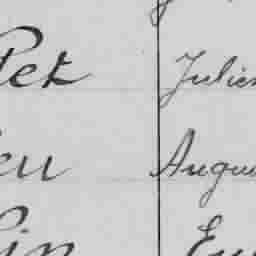 Pet Julien
eu Augu
in Eu